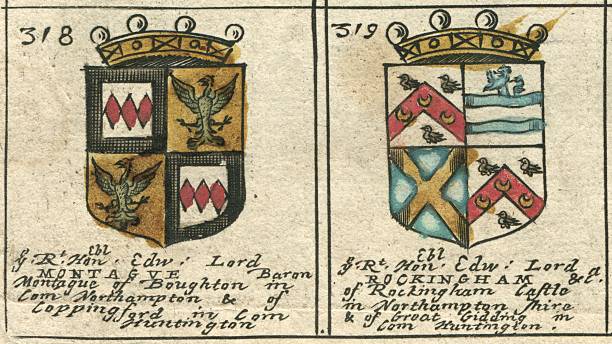 318
ye Rt. Honebl Edw: Lord
MONTAGVE Baron
Montague of Boughton in
Com Northampton & of
Coppingford in Com
Huntington
319
ye Rt. Honebl Edw: Lord
ROCKINGHAM &ca.
of Rockingham Castle
in Northampton shire
& of Great Gidding in
Com Huntington.